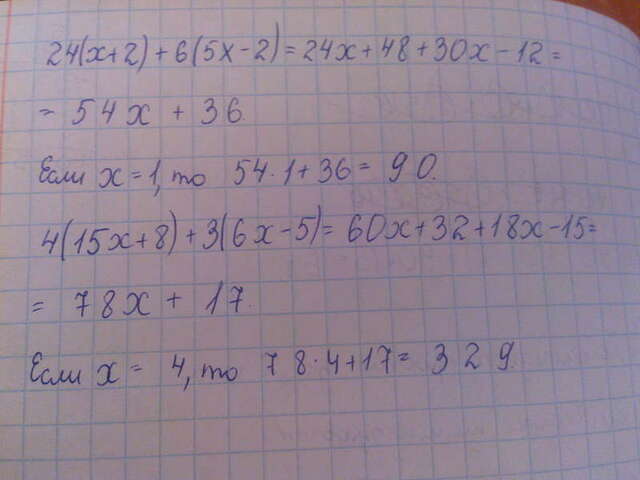 24(x+2)+6(5x-2)=24x+48+30x-12=
= 54x + 36.
Если x=1, то 54·1+36= 90.
4(15x+8)+3(6x-5)=60x+32+18x-15=
= 78x + 17.
Если x= 4, то 78·4+17= 329.